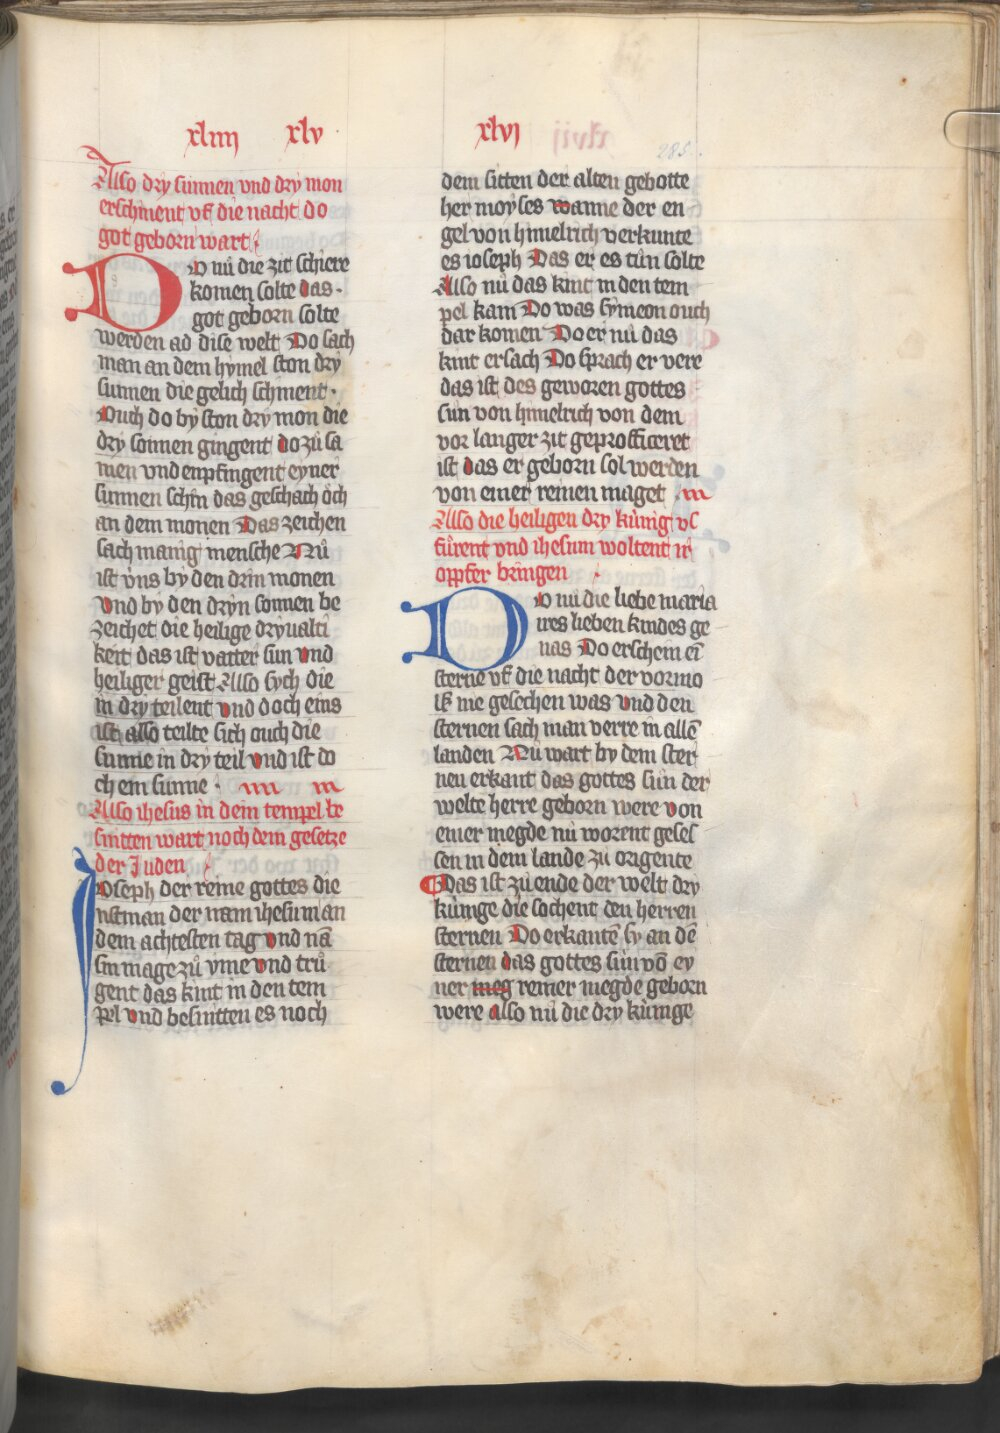 xliiii xlv
Also dry sunnen vnd dry mon
erschinent vf die nacht do
got geborn wart
Do nů die zit schiere
komen solte das
got geborn solte
werden ad dise welt Do sach
man an dem hymel ston dry
sunnen die gelich schinent
Ouch do by ston dry mon die
dry sonnen gingent dozů sa
men vnd enpfingent eyner
sunnen schin das geschach ǒch
an dem monen Das zeichen
sach manig mensche Nů
ist vns by den drin monen
vnd by den dryn sonnen be
zeichet die heilige dryualti
keit das ist vatter sun vnd
heiliger geist Also sych die
in dry teilent vnd doch eins
ist also teilte sich ouch die
sunne in dry teil vnd ist do
ch ein sunne
Also ihesus in dem tempel be
snitten wart noch dem gesetze
der Juden
Joseph der reine gottes die
nstman der nam ihesum an
dem achtesten tag vnd nā
sin mage zů yme vnd trů
gent das kint in den tem
pel vnd besnitten es noch
xlvj
285
dem sitten der alten gebotte
her moyses wanne der en
gel von himelrich verkunte
es ioseph Das er es tůn solte
Also nů das kint in den tem
pel kam Do was symeon ouch
dar komen Do er nů das
kint ersach Do sprach er vere
das ist des geworen gottes
sůn von himelrich von dem
vor langer zit geprofficeret
ist das er geborn sol werden
von einer reinen maget
Also die heiligen dry kůnig vs
fůrent vnd ihesum woltent ir
oppfer bringen
Do nů die liebe maria
ires lieben kindes ge
nas Do erschein eī
sterne vf die nacht der vormo
ls nie gesechen was vnd den
sternen sach man verre in allē
landen Nů wart by dem ster
nen erkant das gottes sůn der
welte herre geborn were von
einer megde nů worent geses
sen in dem lande zů origente
Das ist zů ende der welt dry
kůnge die sochent den herren
sternen Do erkantē sy an dē
sternen das gottes sůn vō ey
ner meg reiner megde geborn
were also nů die dry kůnige